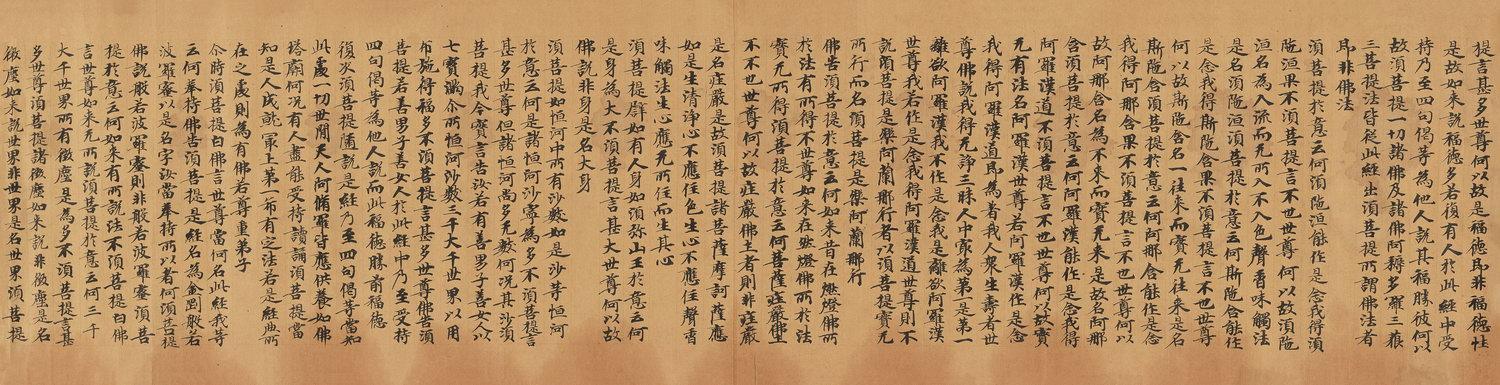 提言甚多世尊何以故是福德即非福德性
是故如来說福德多若復有人於此經中受
持乃至四句偈等為他人說其福勝彼何以
故須菩提一切諸佛及諸佛阿耨多羅三藐
三菩提法皆從此經出須菩提所謂佛法者
即非佛法
須菩提於意云何須陁洹能作是念我得須
陁洹果不須菩提言不也世尊何以故須陁
洹名為入流而无所入不入色聲香味觸法
是名須陁洹須菩提於意云何斯陁含能作
是念我得斯陁含果不須菩提言不也世尊
何以故斯陁含名一往来而實无往来是名
斯陁含須菩提於意云何阿那含能作是念
我得阿那含果不須菩提言不也世尊何以
故阿那含名為不来而實无来是故名阿那
含須菩提於意云何阿羅漢能作是念我得
阿羅漢道不須菩提言不也世尊何以故實
无有法名阿羅漢世尊若阿羅漢作是念
我得阿羅漢道即為着我人衆生壽者世
尊佛說我得无諍三昧人中冣為第一是第一
離欲阿羅漢我不作是念我是離欲阿羅漢
世尊我若作是念我得阿羅漢道世尊則不
說須菩提是樂阿蘭那行者以須菩提實无
所行而名須菩提是樂阿蘭那行
佛告須菩提於意云何如来昔在燃燈佛所
於法有所得不世尊如来在燃燈佛所於法
實无所得須菩提於意云何菩薩莊嚴佛土
不不也世尊何以故莊嚴佛土者則非莊嚴
是名莊嚴是故須菩提諸菩薩摩訶薩應
如是生清淨心不應住色生心不應住聲香
味觸法生心應无所住而生其心
須菩提譬如有人身如須弥山王於意云何
是身為大不須菩提言甚大世尊何以故
佛說非身是名大身
須菩提如恒河中所有沙數如是沙等恒河
於意云何是諸恒河沙寧為多不須菩提言
甚多世尊但諸恒河尚多无數何況其沙須
菩提我今實言告汝若有善男子善女人以
七寶滿尒所恒河沙數三千大千世界以用
布施得福多不須菩提言甚多世尊佛告須
菩提若善男子善女人於此經中乃至受持
四句偈等為他人說而此福德勝前福德
復次須菩提隨說是經乃至四句偈等當知
此處一切世間天人阿脩羅皆應供養如佛
塔廟何況有人盡能受持讀誦須菩提當
知是人成就冣上第一希有之法若是經典所
在之處則為有佛若尊重弟子
尒時須菩提白佛言世尊當何名此經我等
云何奉持佛告須菩提是經名為金剛般若
波羅蜜以是名字汝當奉持所以者何須菩提
佛說般若波羅蜜則非般若波羅蜜須菩
提於意云何如来有所說法不須菩提白佛
言世尊如来无所說須菩提於意云何三千
大千世界所有微塵是為多不須菩提言甚
多世尊須菩提諸微塵如来說非微塵是名
微塵如来說世界非世界是名世界須菩提